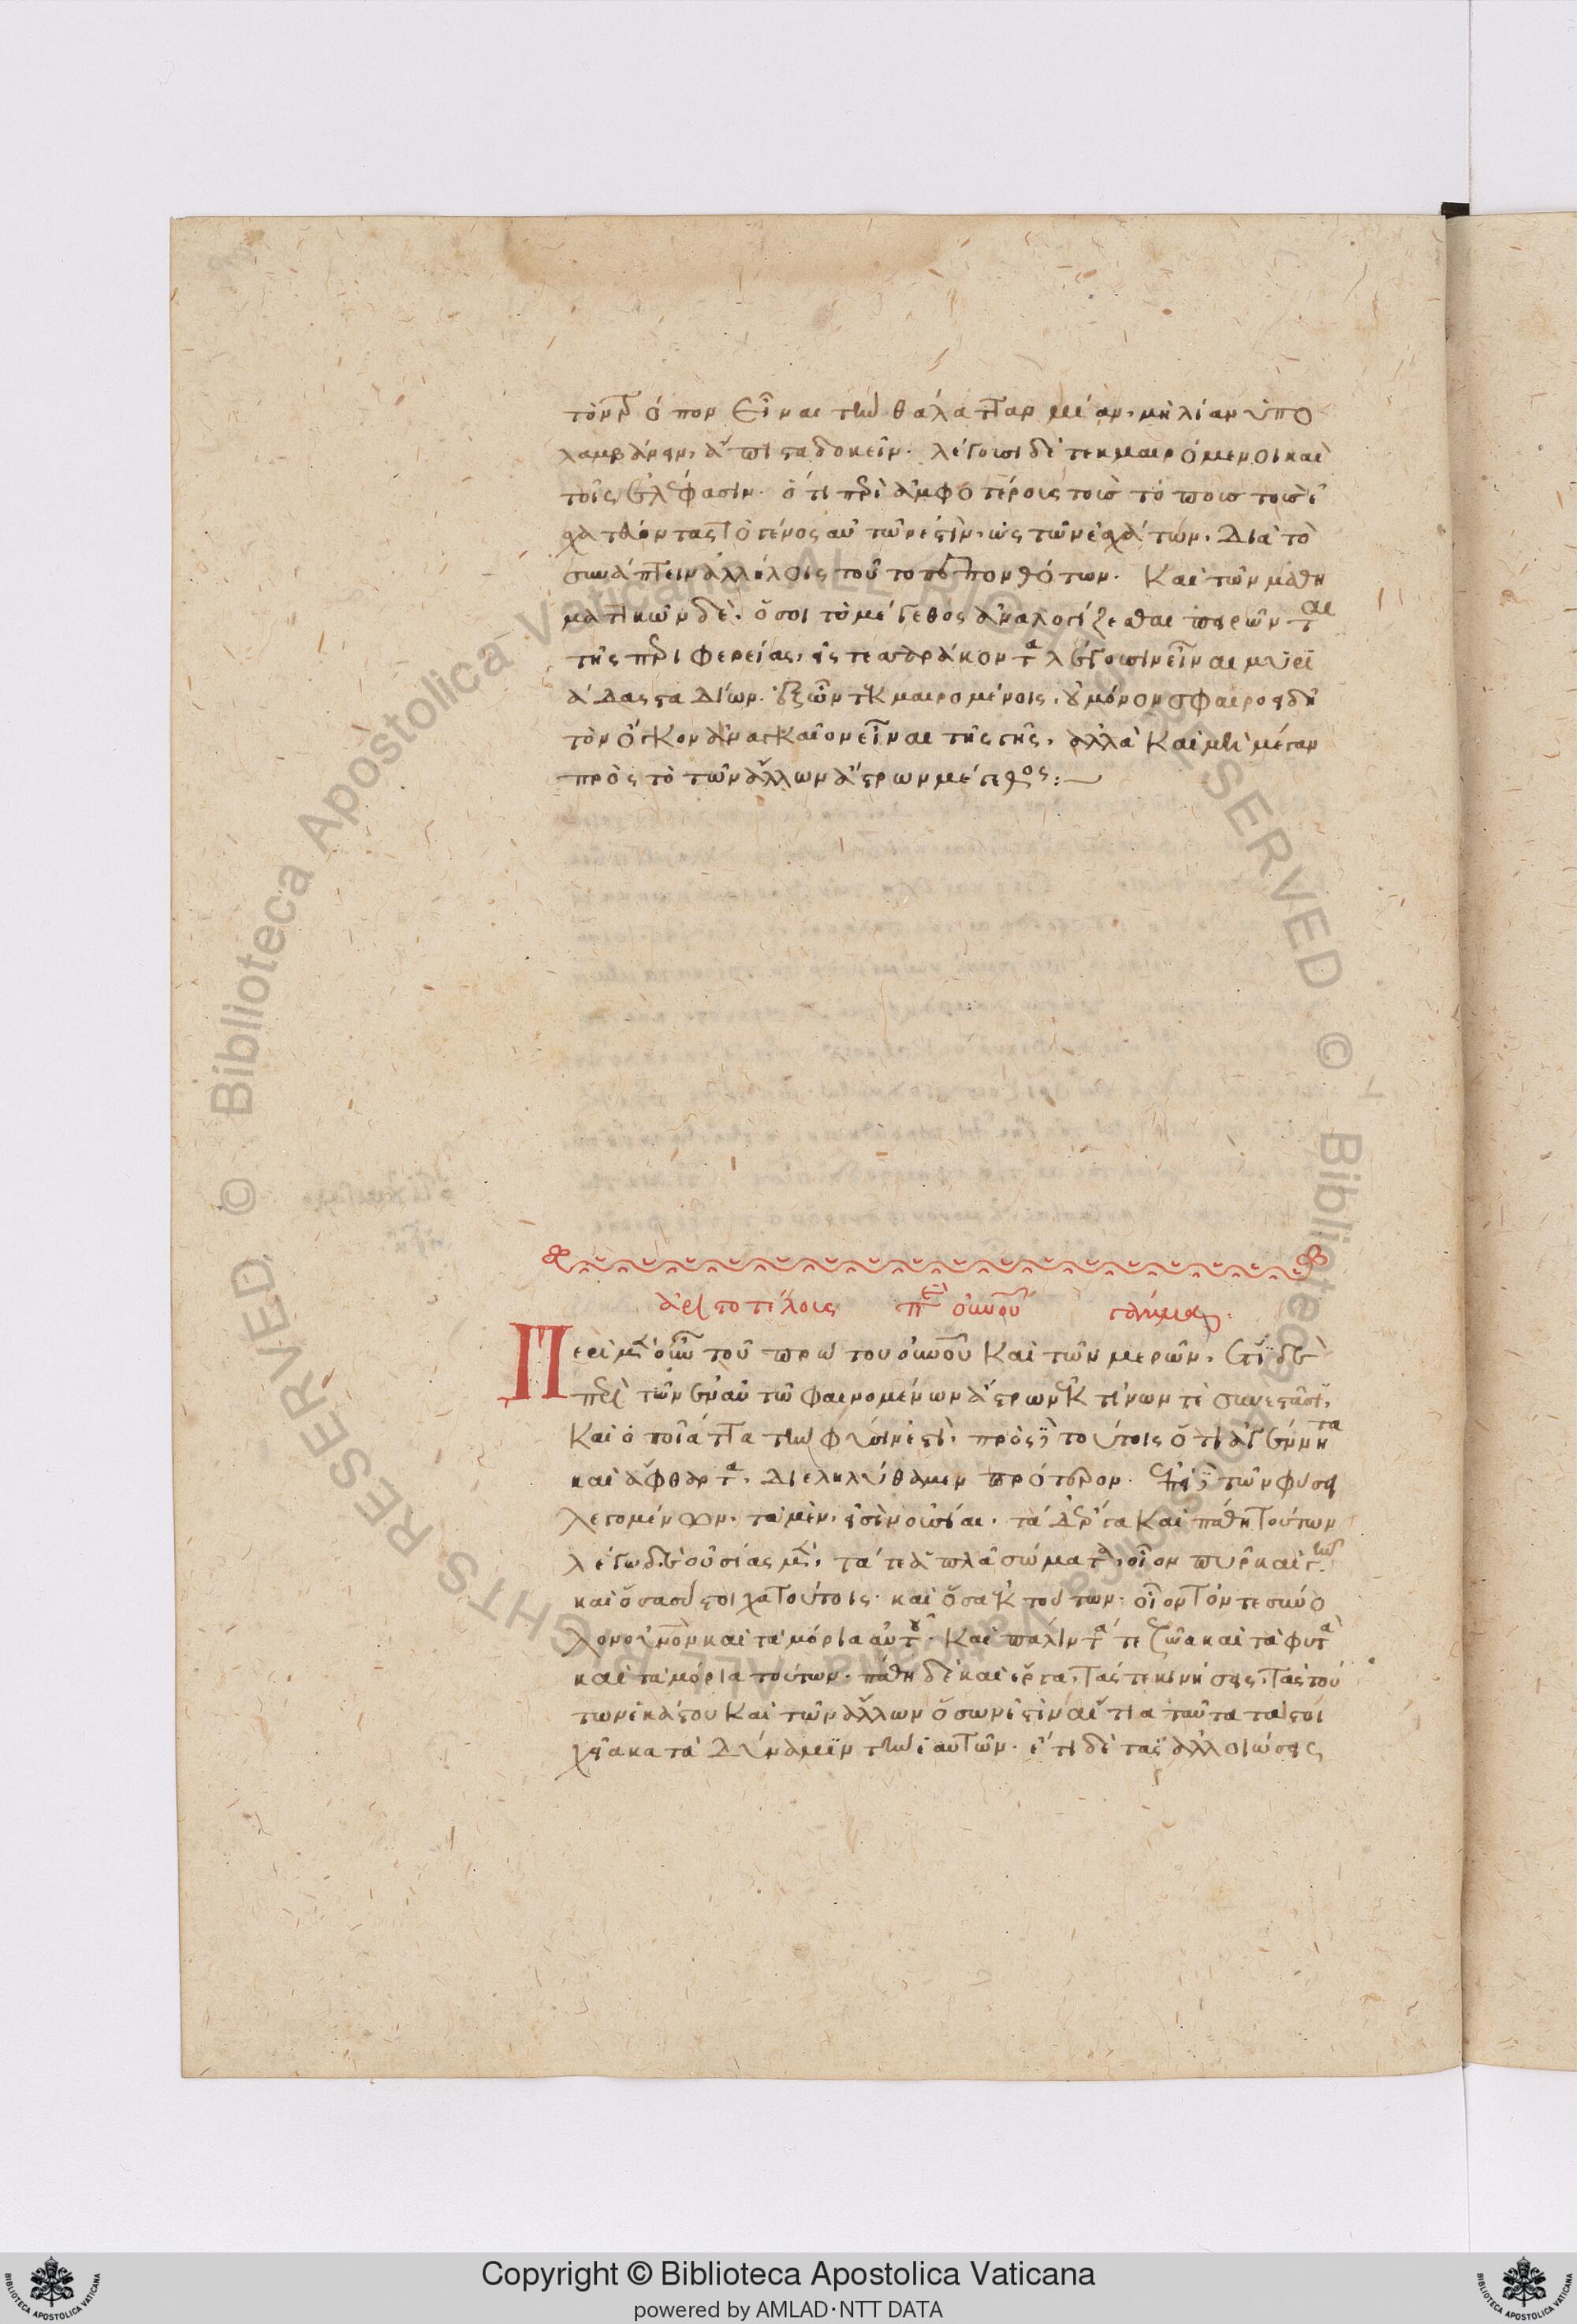 τὸν τρόπον εἶναι τὴν θάλατταν μίαν, μὴ λίαν ὑπο
λαμβάνειν, ἄπιστα δοκεῖν. λέγουσι δὲ τεκμαιρόμενοι καὶ
τοῖς ἐλέφασιν. ὅτι περὶ ἀμφοτέρους τοὺς τόπους τοὺς ἐ
σχατεύοντας τὸ γένος αὐτῶν ἐστὶν, ὡς τῶν ἐσχάτων. διὰ τὸ
συνάπτειν ἀλλήλοις τοῦτο πεπονθότων. Καὶ τῶν μαθη
ματικῶν δὲ, ὅσοι τὸ μέγεθος ἀναλογίζεσθαι πειρῶνται
τῆς περιφερείας, εἰς τεσσαράκοντα λέγουσιν εἶναι μυρι
άδας σταδίων. ἐξ ὧν τεκμαιρομένοις, οὐ μόνον σφαιροειδῆ
τὸν ὄγκον ἀναγκαῖον εἶναι τῆς γῆς, ἀλλὰ καὶ μὴ μέγαν
πρὸς τὸ τῶν ἄλλων ἄστρων μέγεθος:
ἀριστοτέλους περὶ οὐρανοῦ
Περὶ μὲν οὖν τοῦ πρώτου οὐρανοῦ καὶ τῶν μερῶν, ἔτι δὲ
περὶ τῶν ἐν αὐτῷ φαινομένων ἄστρων ἐκ τίνων τὲ συνεστᾶσι,
καὶ ὁποῖα ἄττα τὴν φύσιν ἐστὶ, πρὸς δὲ τούτοις ὅτι ἀγένητα
καὶ ἄφθαρτα, διεληλύθαμεν πρότερον. ἐπεὶ δὲ τῶν φύσει
λεγομένων, τὰ μὲν, εἰσὶν οὐσίαι, τὰ δ' ἔργα καὶ πάθη τούτων
λέγω δὲ οὐσίας μὲν, τά τε ἁπλᾶ σώματα, οἷον πῦρ καὶ γῆν
καὶ ὅσα σύστοιχα τούτοις. καὶ ὅσα ἐκ τούτων. οἷον τόν τε σύνο
λον οὐρανὸν καὶ τὰ μόρια αὐτοῦ. καὶ πάλιν τά τε ζῶα καὶ τὰ φυτὰ
καὶ τὰ μόρια τούτων. πάθη δὲ καὶ ἔργα, τάς τε κινήσεις, τὰς τού
των ἑκάστου καὶ τῶν ἄλλων ὅσων ἐστὶν αἴτια ταῦτα τὰ στοι
χεῖα κατὰ δύναμιν τὴν ἑαυτῶν. ἔτι δὲ τὰς ἀλλοιώσεις
Copyright © Biblioteca Apostolica Vaticana
powered by AMLAD·NTT DATA
© Biblioteca Apostolica Vaticana ALL RIGHTS RESERVED
© Biblioteca Apostolica Vaticana ALL RIGHTS RESERVED